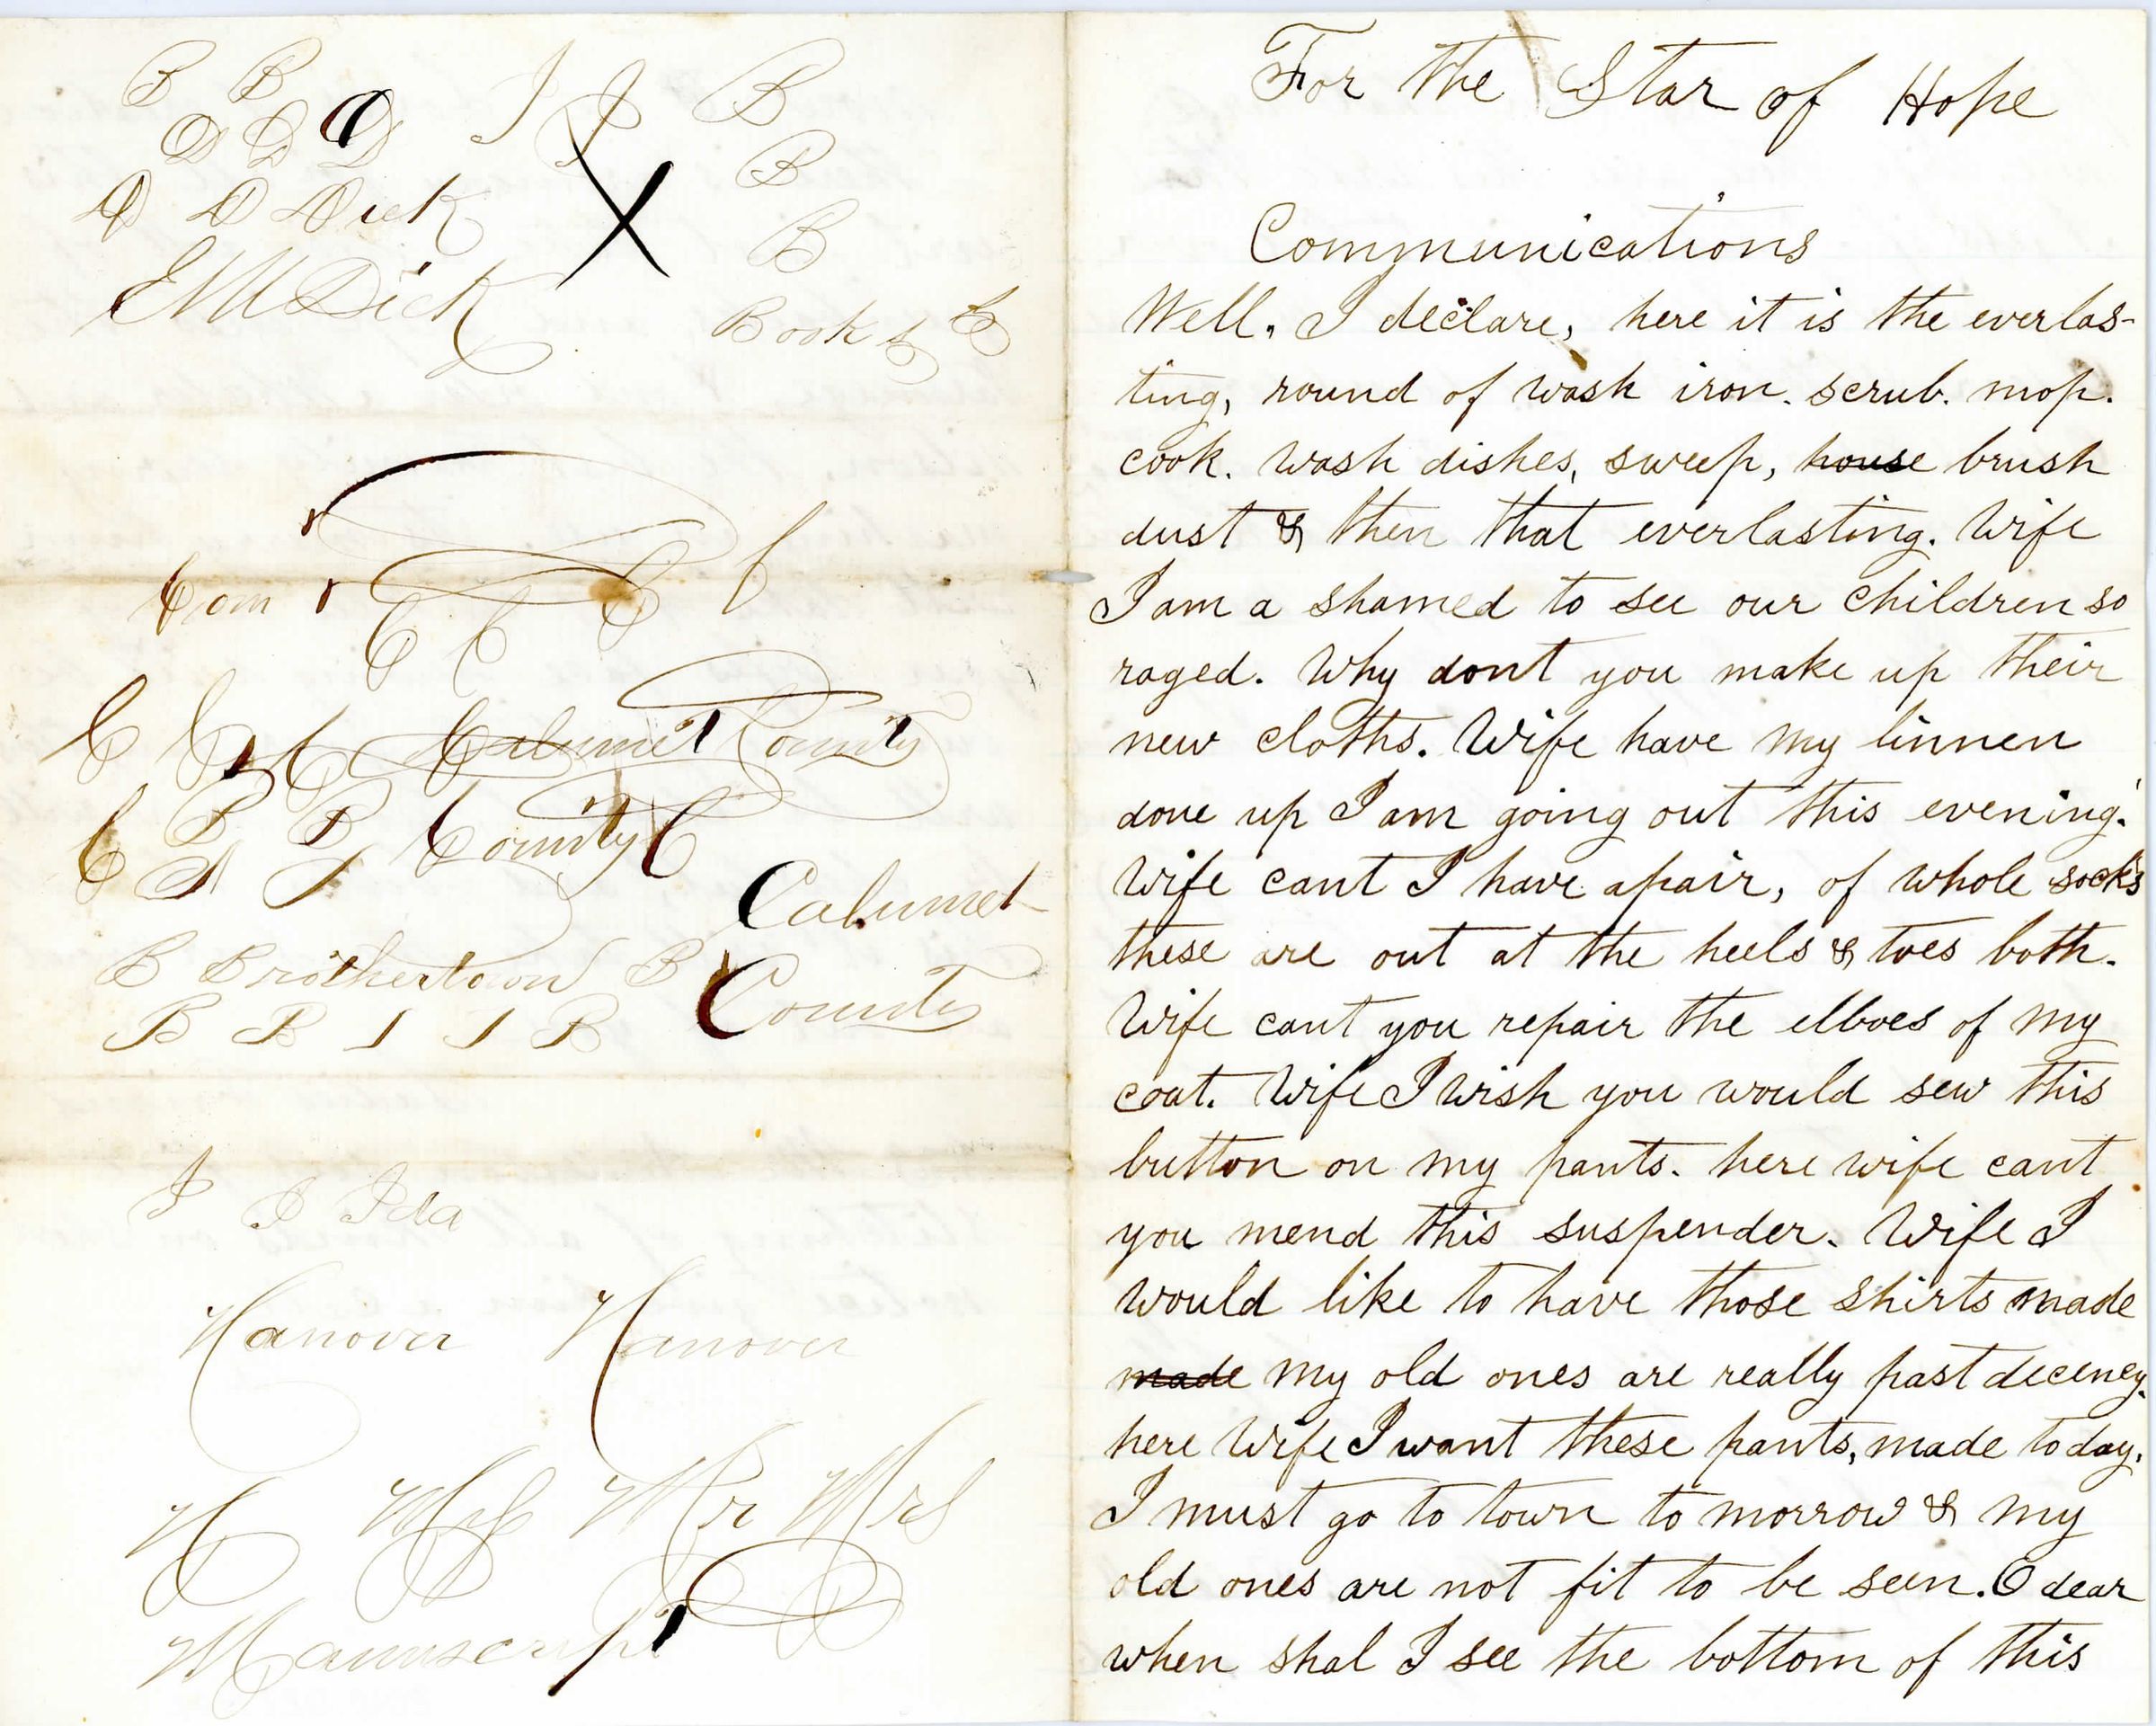 B B B
D D D J J
D D Dick B
E M Dick B
Books B
Com C
C C C
C C C Calumet County
C B B County C
Calumet
B Brothertown B County
B B I I B
I I Ida
Hanover Hanover
H Mrs Mr Mrs
Manuscript
For the Star of Hope
Communications
Well. I declare, here it is the everlas-
ting, round of wash iron. scrub. mop.
cook. wash dishes, sweep, house brush
dust & then that everlasting. Wife
I am a shamed to see our children so
raged. Why dont you make up their
new cloths. Wife have my linnen
done up I am going out this evening.
Wife cant I have apair, of whole socks
these are out at the heels & toes both.
Wife cant you repair the elboes of my
coat. Wife I wish you would sew this
button on my pants. here wife cant
you mend this suspender. Wife I
would like to have those shirts made
made my old ones are really past decency.
here Wife I want these pants, made to day.
I must go to town to morrow & my
old ones are not fit to be seen. O dear
when shal I see the bottom of this